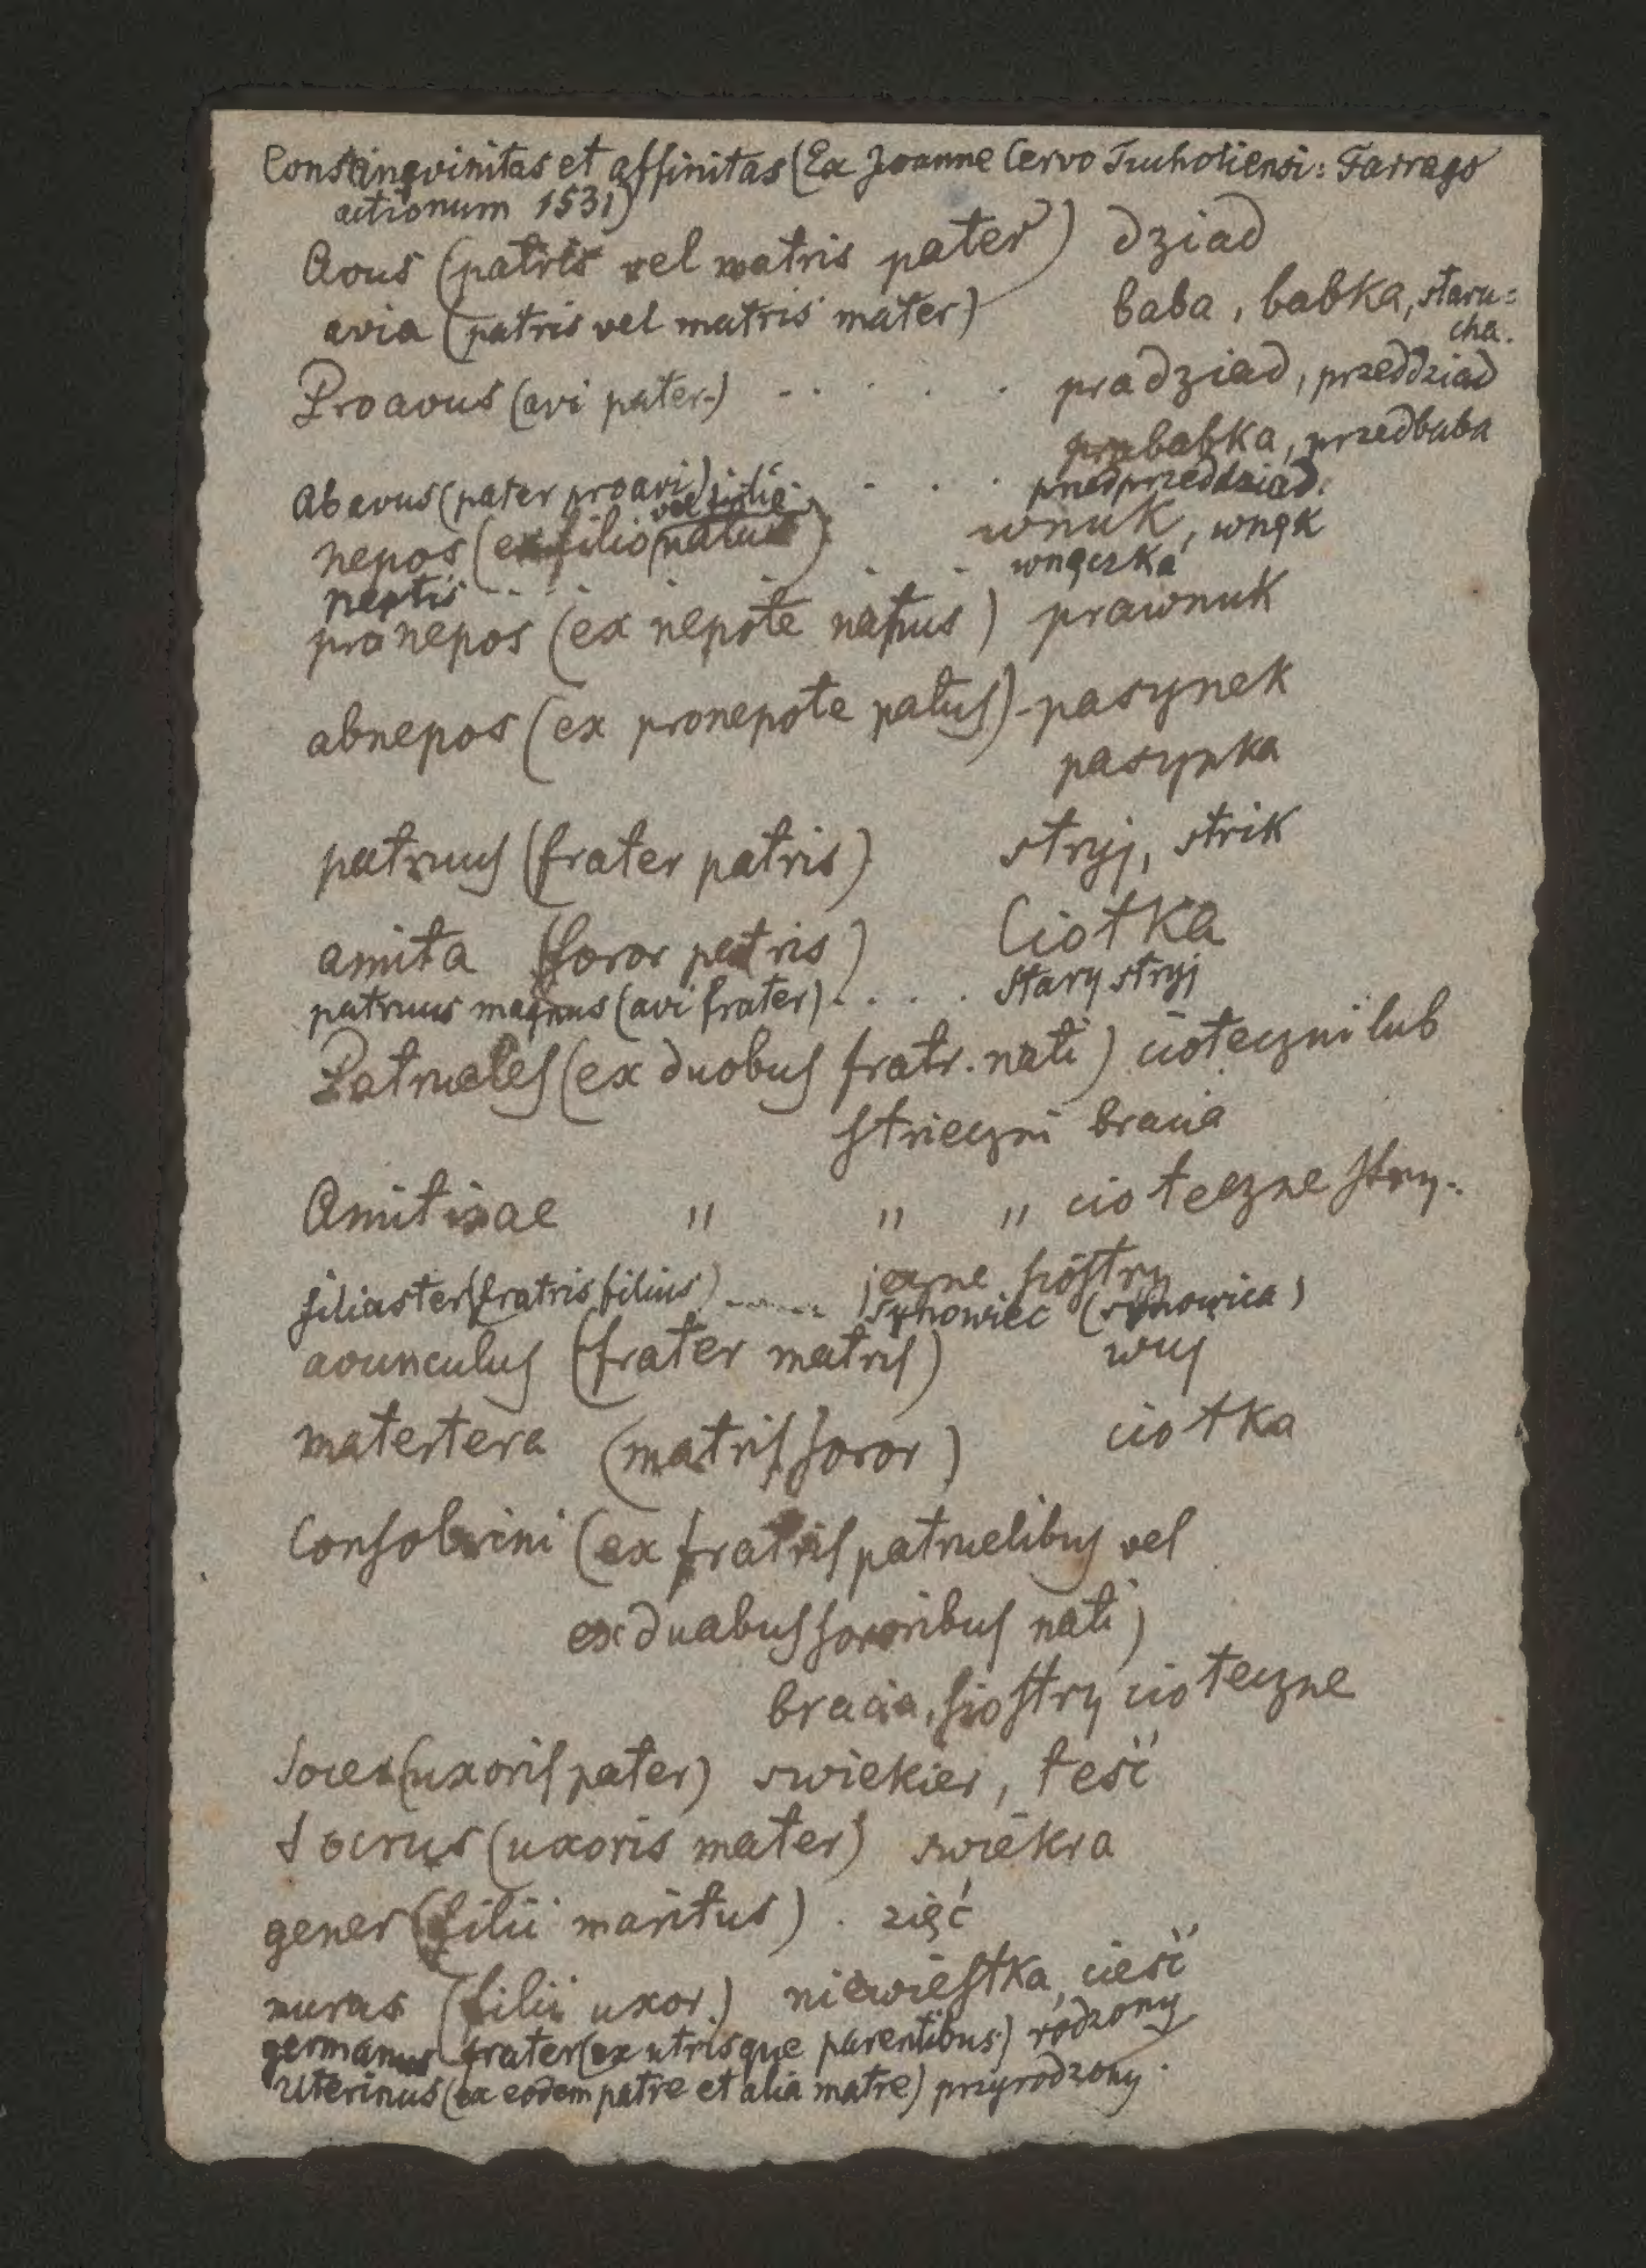 Consangvinitas et affinitas (Ex Joanne Cervo Tucholiensi: Farrago
actionum 1531)
Avus (patris vel matris pater) dziad
avia (patris vel matris mater) baba, babka, staru=
cha.
Proavus (avi pater) - - . . . . pradziad, przeddziad
prababka, przedbaba
Abavus (pater proavi) - . . . przedprzeddziad.
nepos (ex filio vel filia natus) wnuk, wnęk
neptis - - . . . . wnęczka
pronepos (ex nepote natus) prawnuk
abnepos (ex pronepote natus) - pasynek
pasynka
patruus (frater patris) stryj, strik
amita (soror patris) Ciotka
patruus magnus (avi frater) . . . . stary stryj
Patrueles (ex duobus fratr. nati) cioteczni lub
strieczni bracia
Amitinae " " " cioteczne stry-
jeczne siostry
filiaster (fratris filius) ........ synowiec (synowica)
avunculus (frater matris) wuj
matertera (matris soror) ciotka
Consobrini (ex fratris patruelibus vel
ex duabus sororibus nati)
bracia, siostry cioteczne
Socer (uxoris pater) swiekier, teść
Socrus (uxoris mater) swiekra
gener (filii maritus) . zięć
nurus (filii uxor.) niewiestka, cieść
germanus frater (ex utrisque parentibus) rodzony
Uterinus (ex eodem patre et alia matre) przyrodzony.